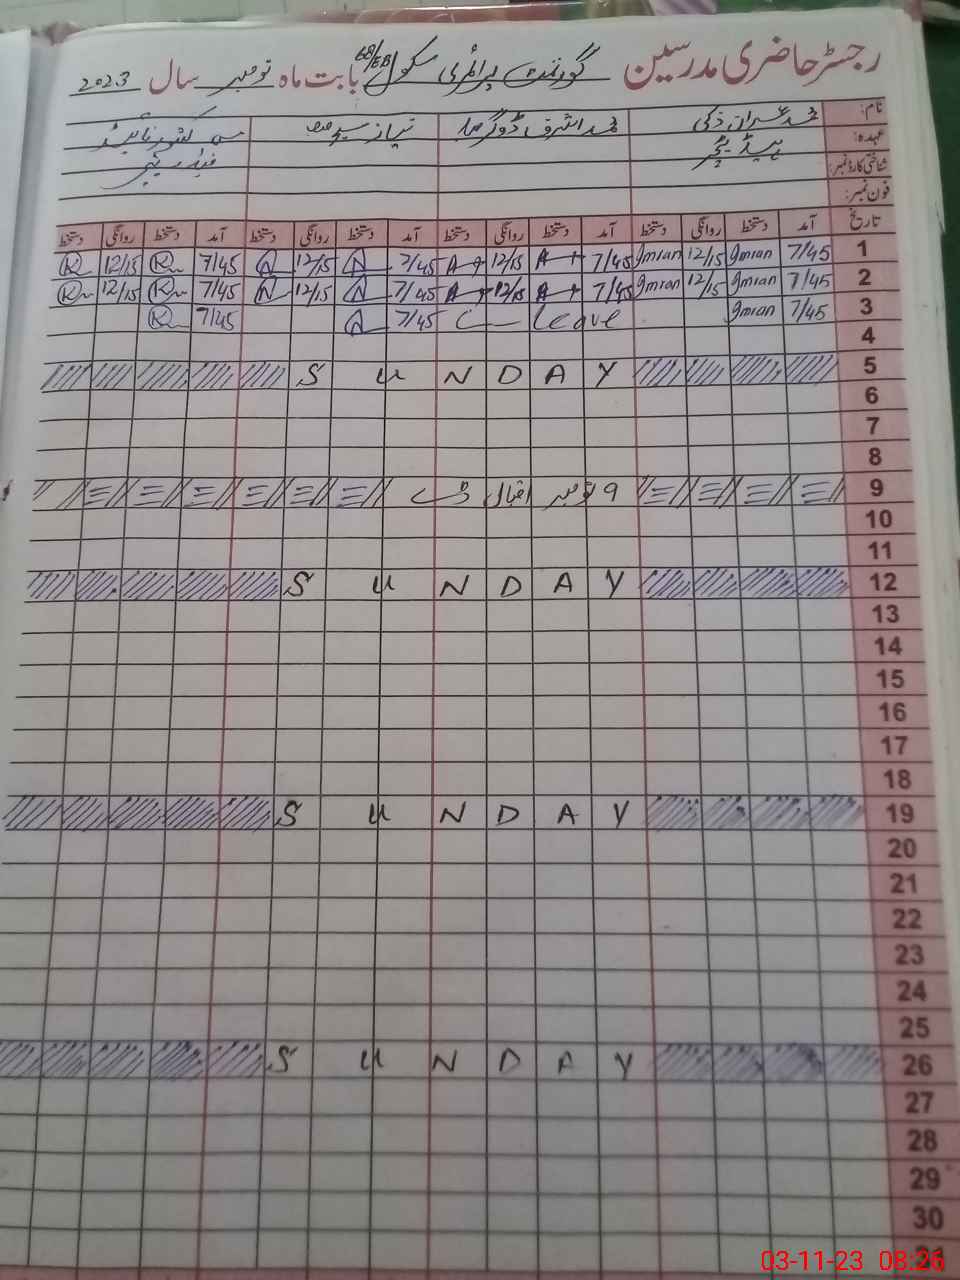 رجسٹر حاضری مدرسین گورنمنٹ پرائمری سکول 68/EB بابت ماہ نومبر سال 2023
نام: محمد عمران ذکی محمد اشرف ڈوگر نیاز
عہدہ: ہیڈ ٹیچر
شناختی کارڈ نمبر:
فون نمبر:
تاریخ آمد دستخط روانگی دستخط آمد دستخط روانگی دستخط آمد دستخط روانگی دستخط آمد دستخط روانگی دستخط
1 7/45 Imran 12/15 Imran 7/45 A 12/15 A 7/45 N 12/15 N 7/45 K 12/15 K
2 7/45 Imran 12/15 Imran 7/45 A 12/15 A 7/45 N 12/15 N 7/45 K 12/15 K
3 7/45 Imran C Leave 7/45 N 7/45 K
4
5 SUNDAY
6
7
8
9 9 نومبر اقبال ڈے
10
11
12 SUNDAY
13
14
15
16
17
18
19 SUNDAY
20
21
22
23
24
25
26 SUNDAY
27
28
29
30
31
03-11-23 08:26